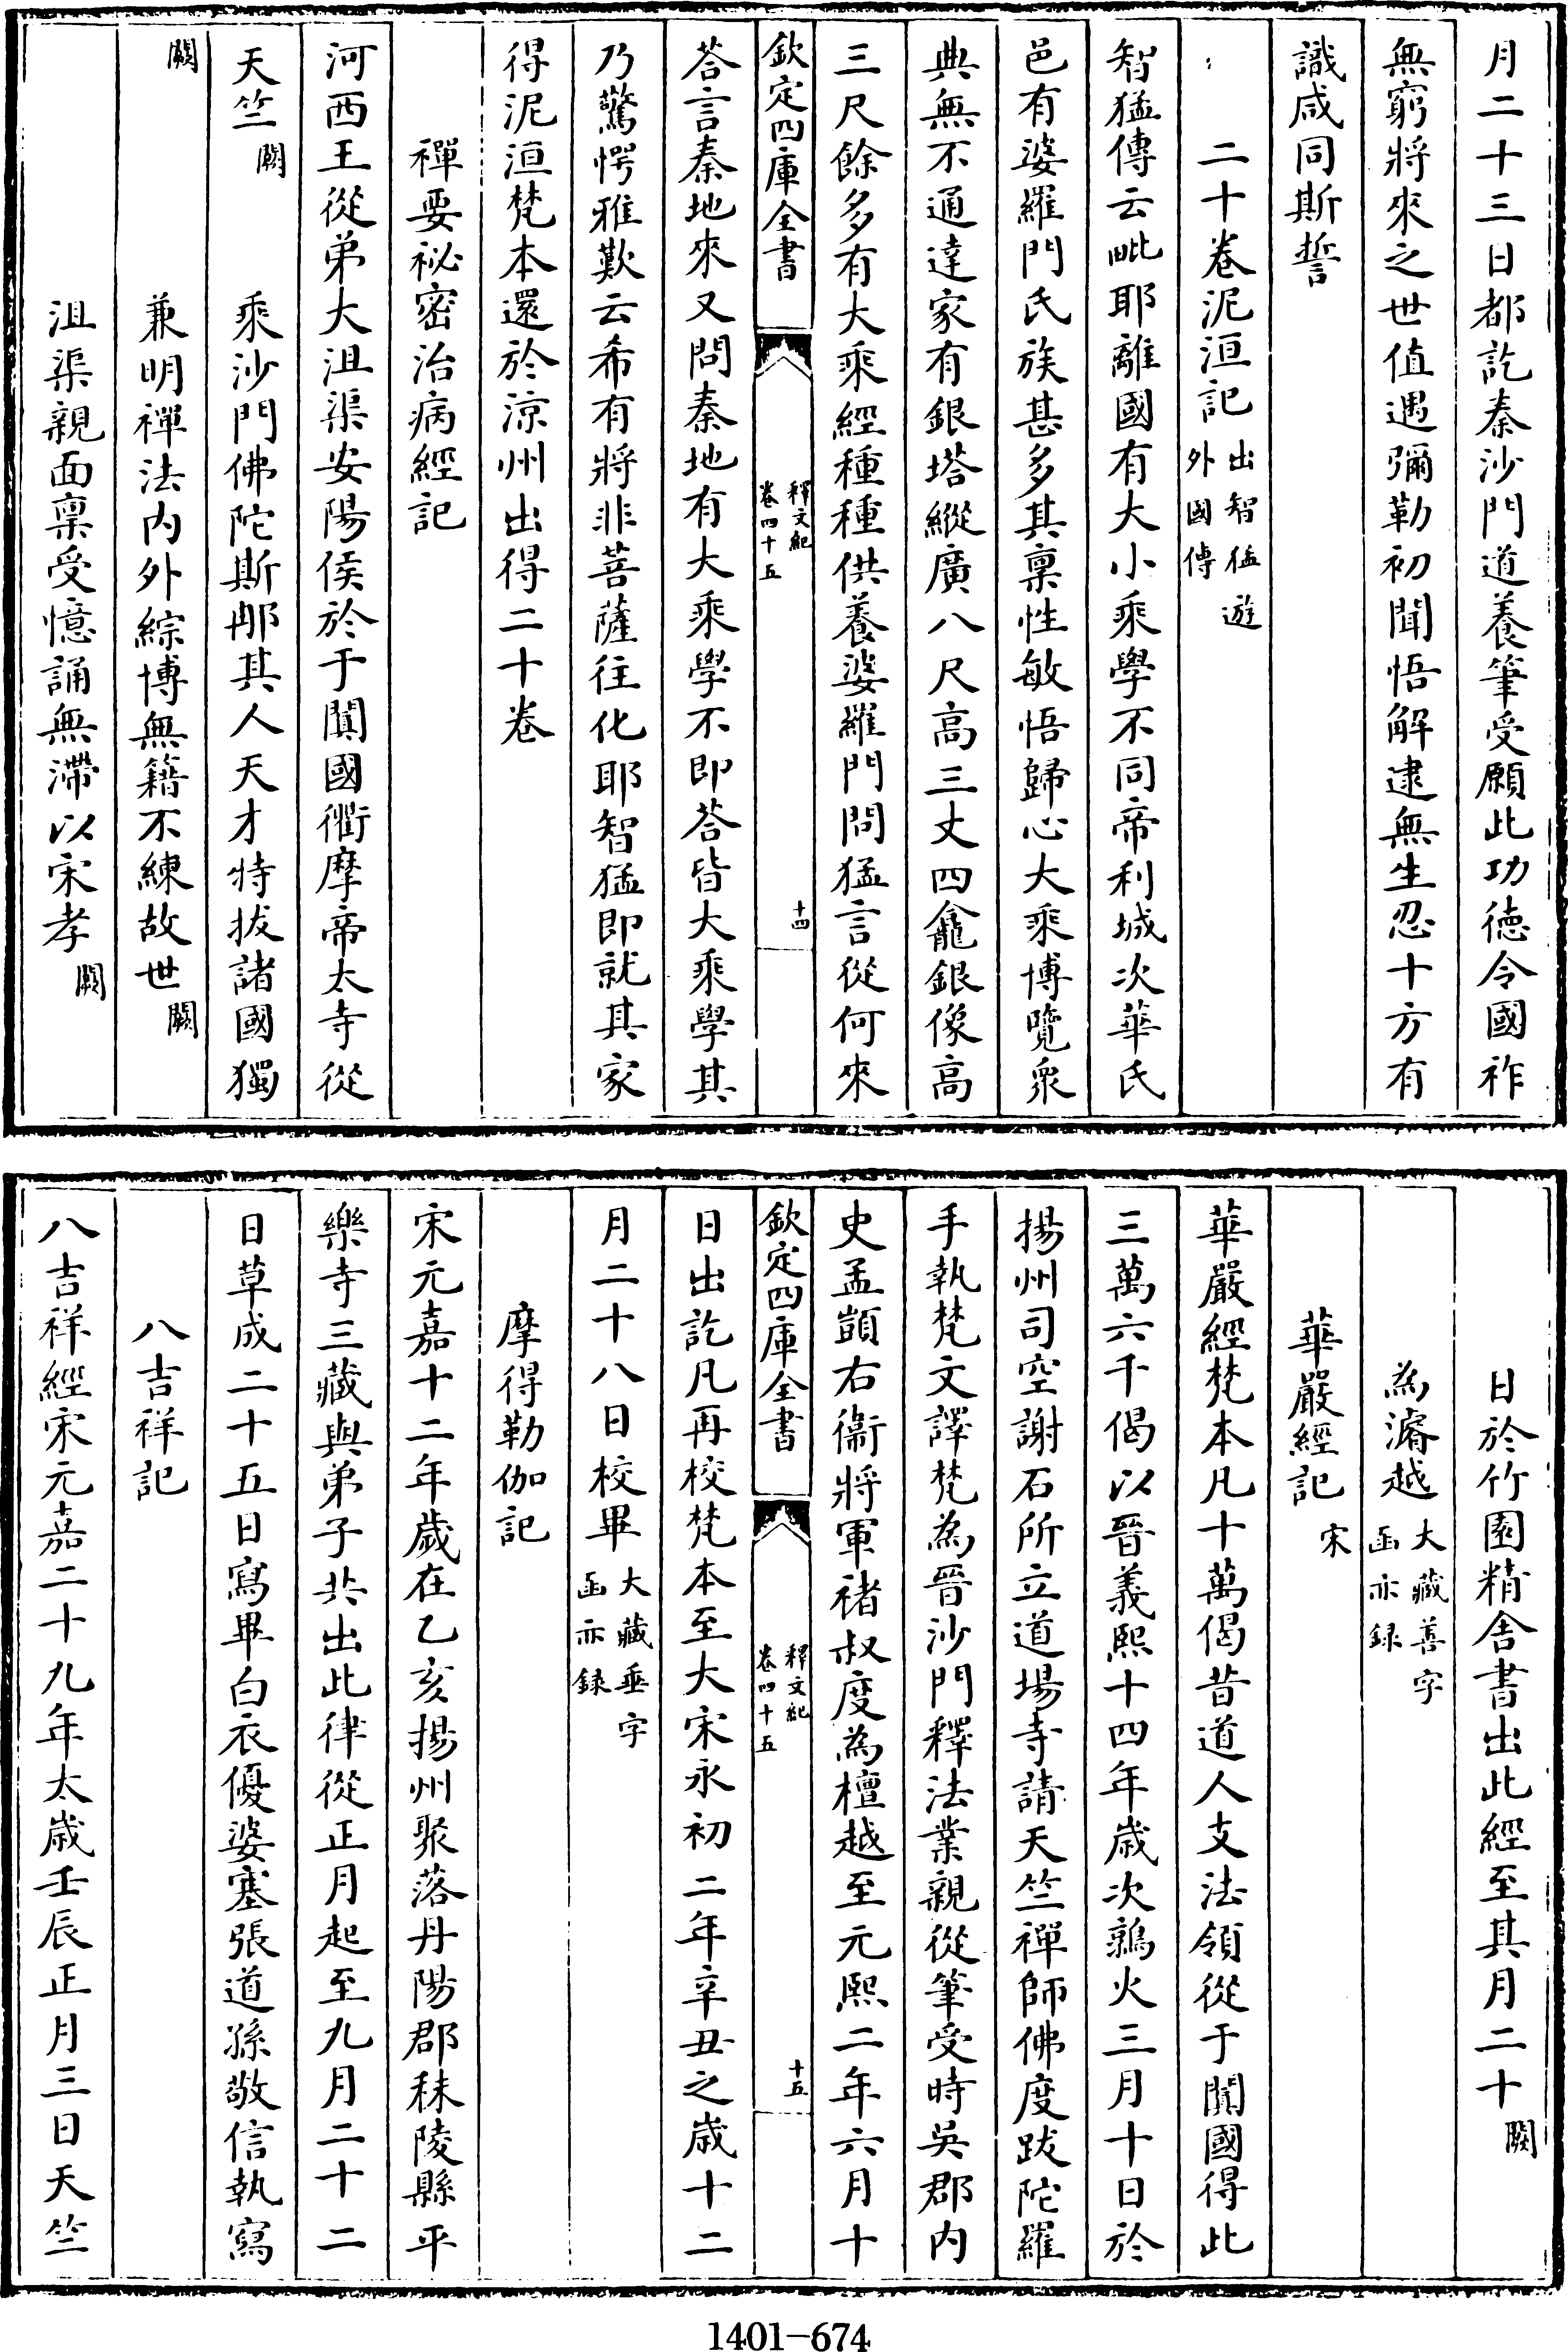 月二十三日都訖秦沙門道養筆受願此功徳令國祚
無窮將來之世值遇彌勒初聞悟解逮無生忍十方有
識咸同斯誓
二十卷泥洹記出智猛遊
外國傳
智猛傳云毗耶離國有大小乘學不同帝利城次華氏
邑有婆羅門氏族甚多其稟性敏悟歸心大乘博覽衆
典無不通達家有銀塔縱廣八尺高三丈四龕銀像高
三尺餘多有大乘經種種供養婆羅門問猛言從何來
欽定四庫全書
釋文紀
卷四十五
十四
荅言秦地來又問秦地有大乘學不即荅皆大乘學其
乃驚愕雅歎云希有將非菩薩往化耶智猛即就其家
得泥洹梵本還於涼州出得二十卷
禪要祕密治病經記
河西王從弟大沮渠安陽侯於于闐國衢摩帝太寺從
天竺闕乘沙門佛陀斯那其人天才特拔諸國獨
闕兼明禪法内外綜博無籍不練故世闕
沮渠親面稟受憶誦無滯以宋孝闕
日於竹園精舍書出此經至其月二十闕
為濬越大藏善字
函亦録
華嚴經記宋
華嚴經梵本凡十萬偈昔道人支法領從于闐國得此
三萬六千偈以晉義熙十四年歲次鶉火三月十日於
揚州司空謝石所立道場寺請天竺禪師佛度跋陀羅
手執梵文譯梵為晉沙門釋法業親從筆受時吳郡内
史孟顗右衞將軍褚叔度為檀越至元熙二年六月十
欽定四庫全書
釋文紀
卷四十五
十五
日出訖凡再校梵本至大宋永初二年辛丑之歲十二
月二十八日校畢大藏垂字
函亦録
摩得勒伽記
宋元嘉十二年歲在乙亥揚州聚落丹陽郡秣陵縣平
樂寺三藏與弟子共出此律從正月起至九月二十二
日草成二十五日寫畢白衣優婆塞張道孫敬信執寫
八吉祥記
八吉祥經宋元嘉二十九年太歲壬辰正月三日天竺
1401-674